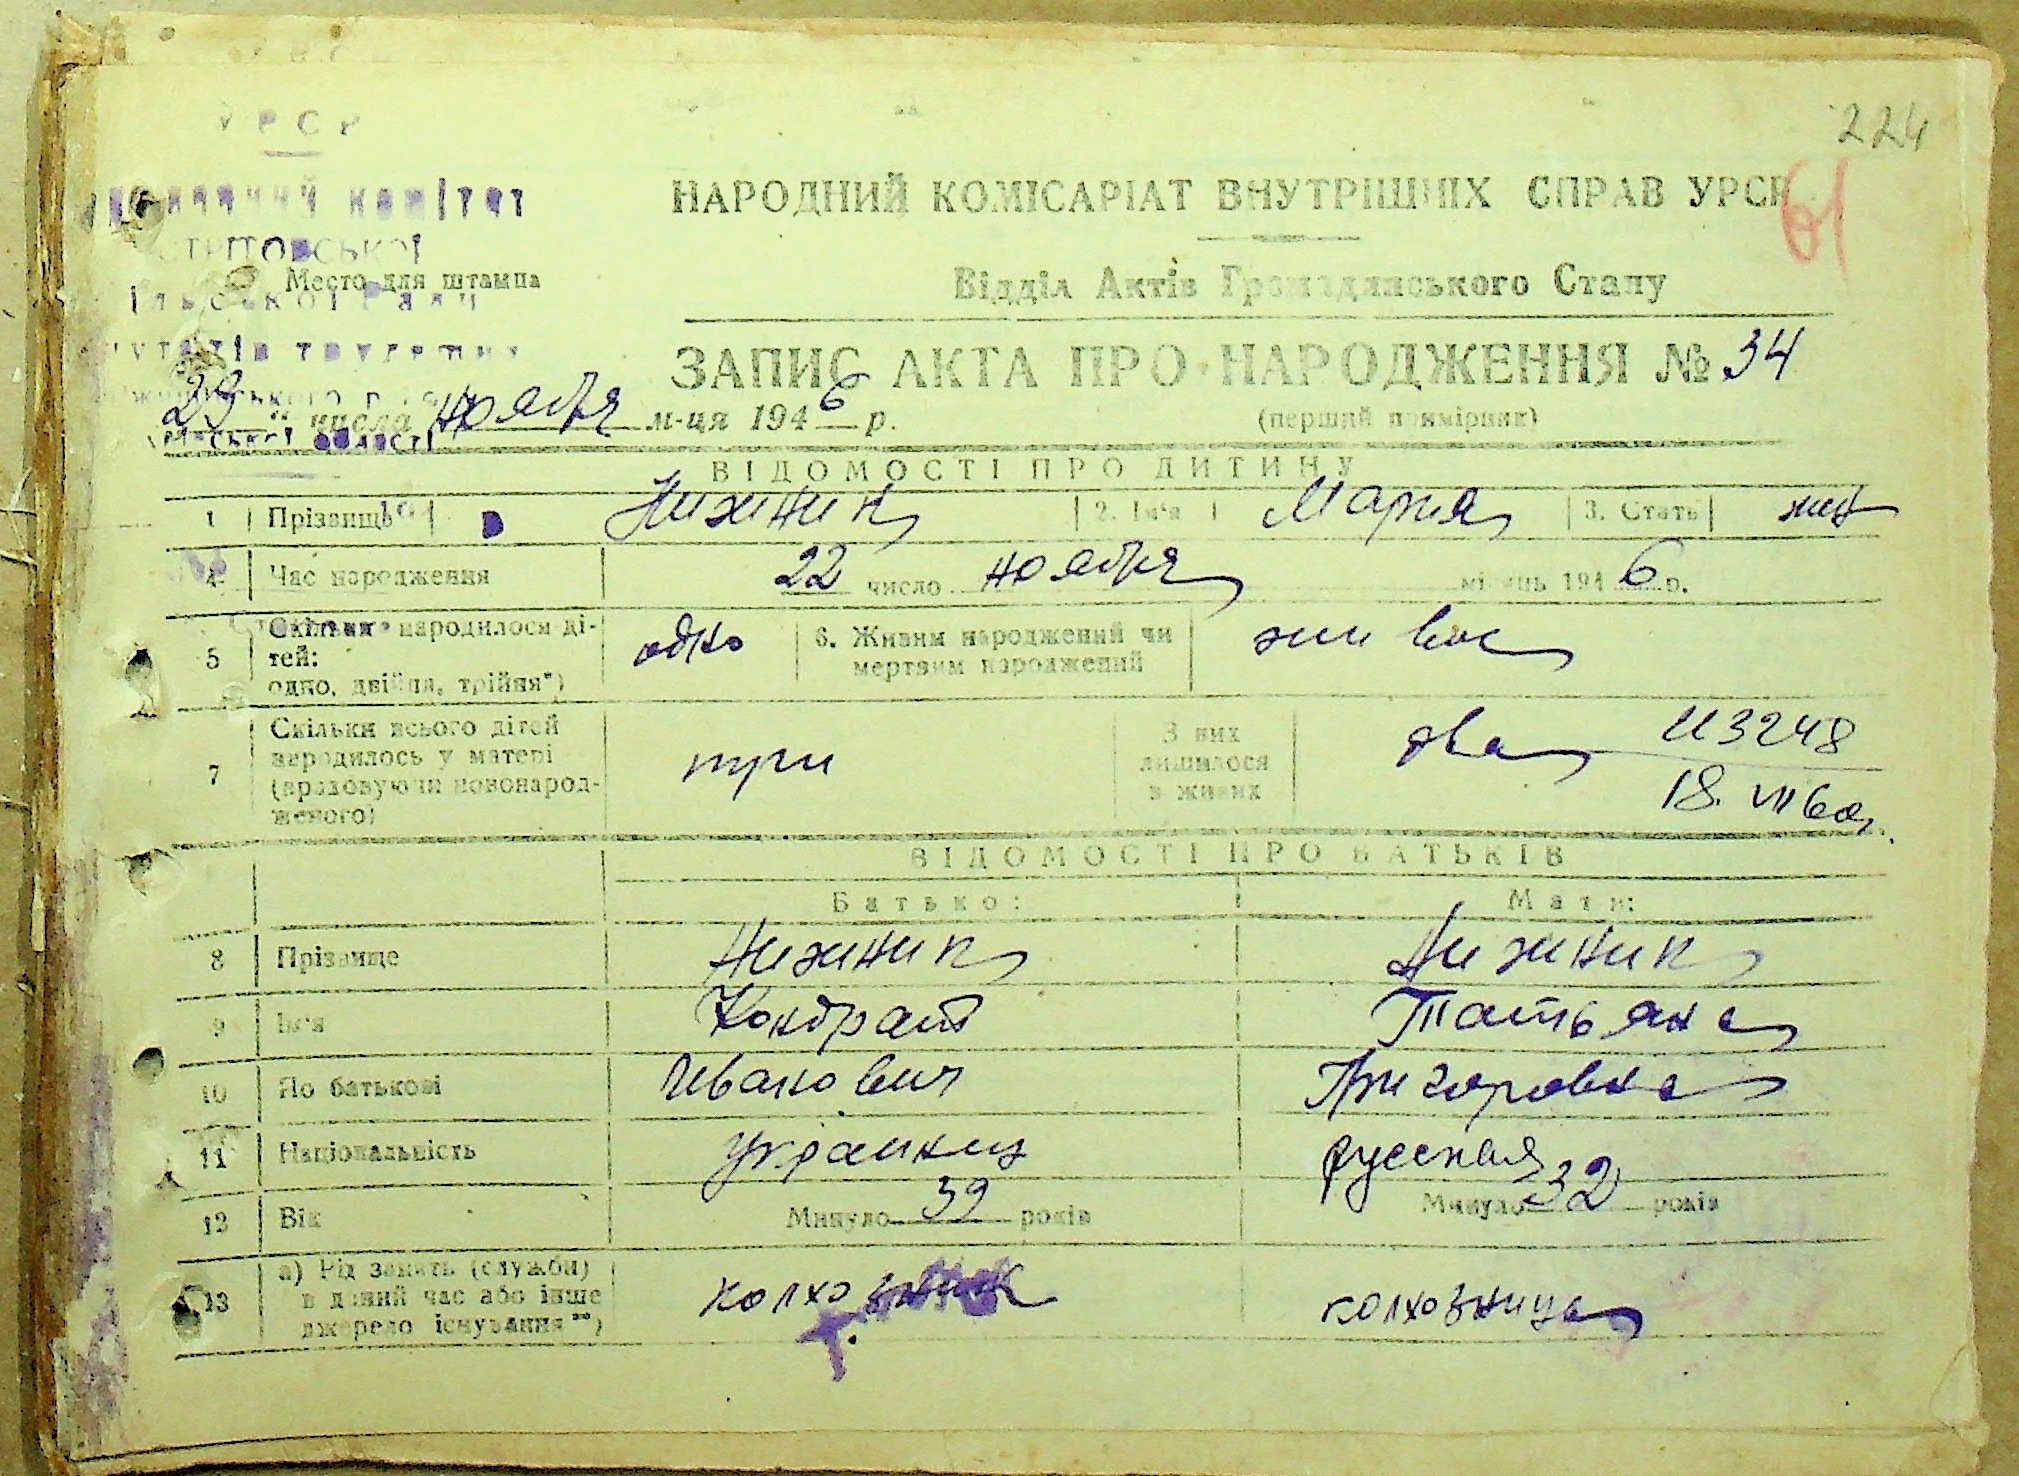 224
УРСР
комітет
НАРОДНИЙ КОМІСАРІАТ ВНУТРІШНІХ СПРАВ УРСР
61
Место для штампа
Відділ Актів Громадянського Стану
ЗАПИС АКТА ПРО НАРОДЖЕННЯ № 34
29 " числа ноября м-ця 1946 р.
(перший примірник)
області
ВІДОМОСТІ ПРО ДИТИНУ
1 Прізвище Нижник 2. Ім'я Мария 3. Стать жен
4 Час народження 22 число ноября місяць 1946 р.
5 Скільки народилося дітей: одно, двійня, трійня*) одно 6. Живим народжений чи мертвим народжений живою
7 Скільки всього дітей народилось у матері (враховуючи новонародженого) три З них лишилося в живих два
18. VII 60г.
ВІДОМОСТІ ПРО БАТЬКІВ
Батько: Мати:
8 Прізвище Нижник Нижник
9 Ім'я Кондрат Татьяна
10 По батькові Иванович Григоровна
11 Національність украинец русская
12 Вік Минуло 39 років Минуло 32 років
13 а) Рід занять (служби) в даний час або інше джерело існування**) колхозник колхозница